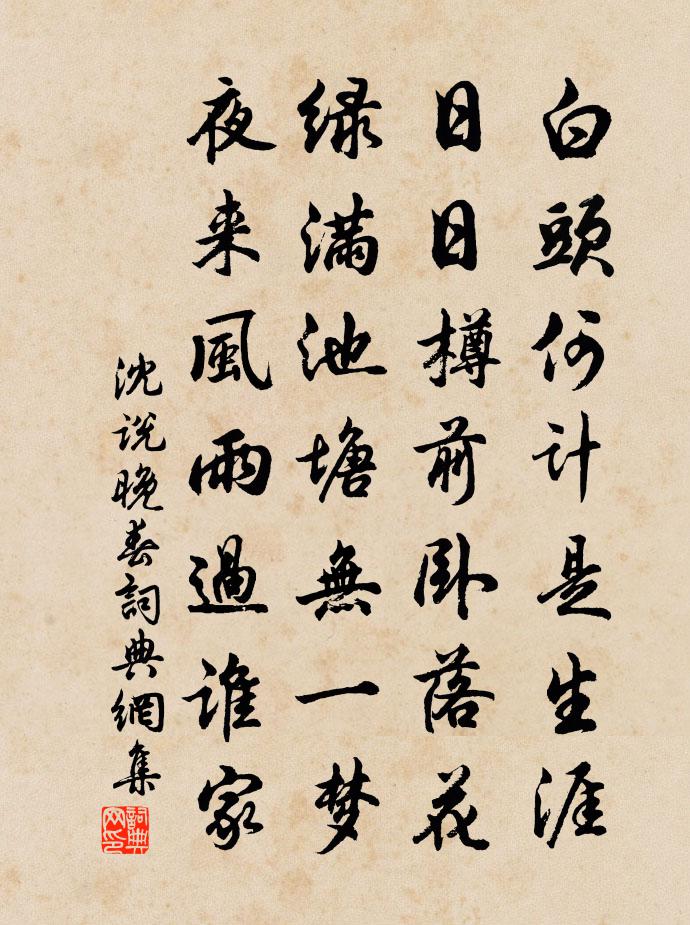 白頭何计是生涯
日日樽前卧落花
绿满池塘無一梦
夜来風雨過谁家
沈说晚春詞典網集
詞典
网印